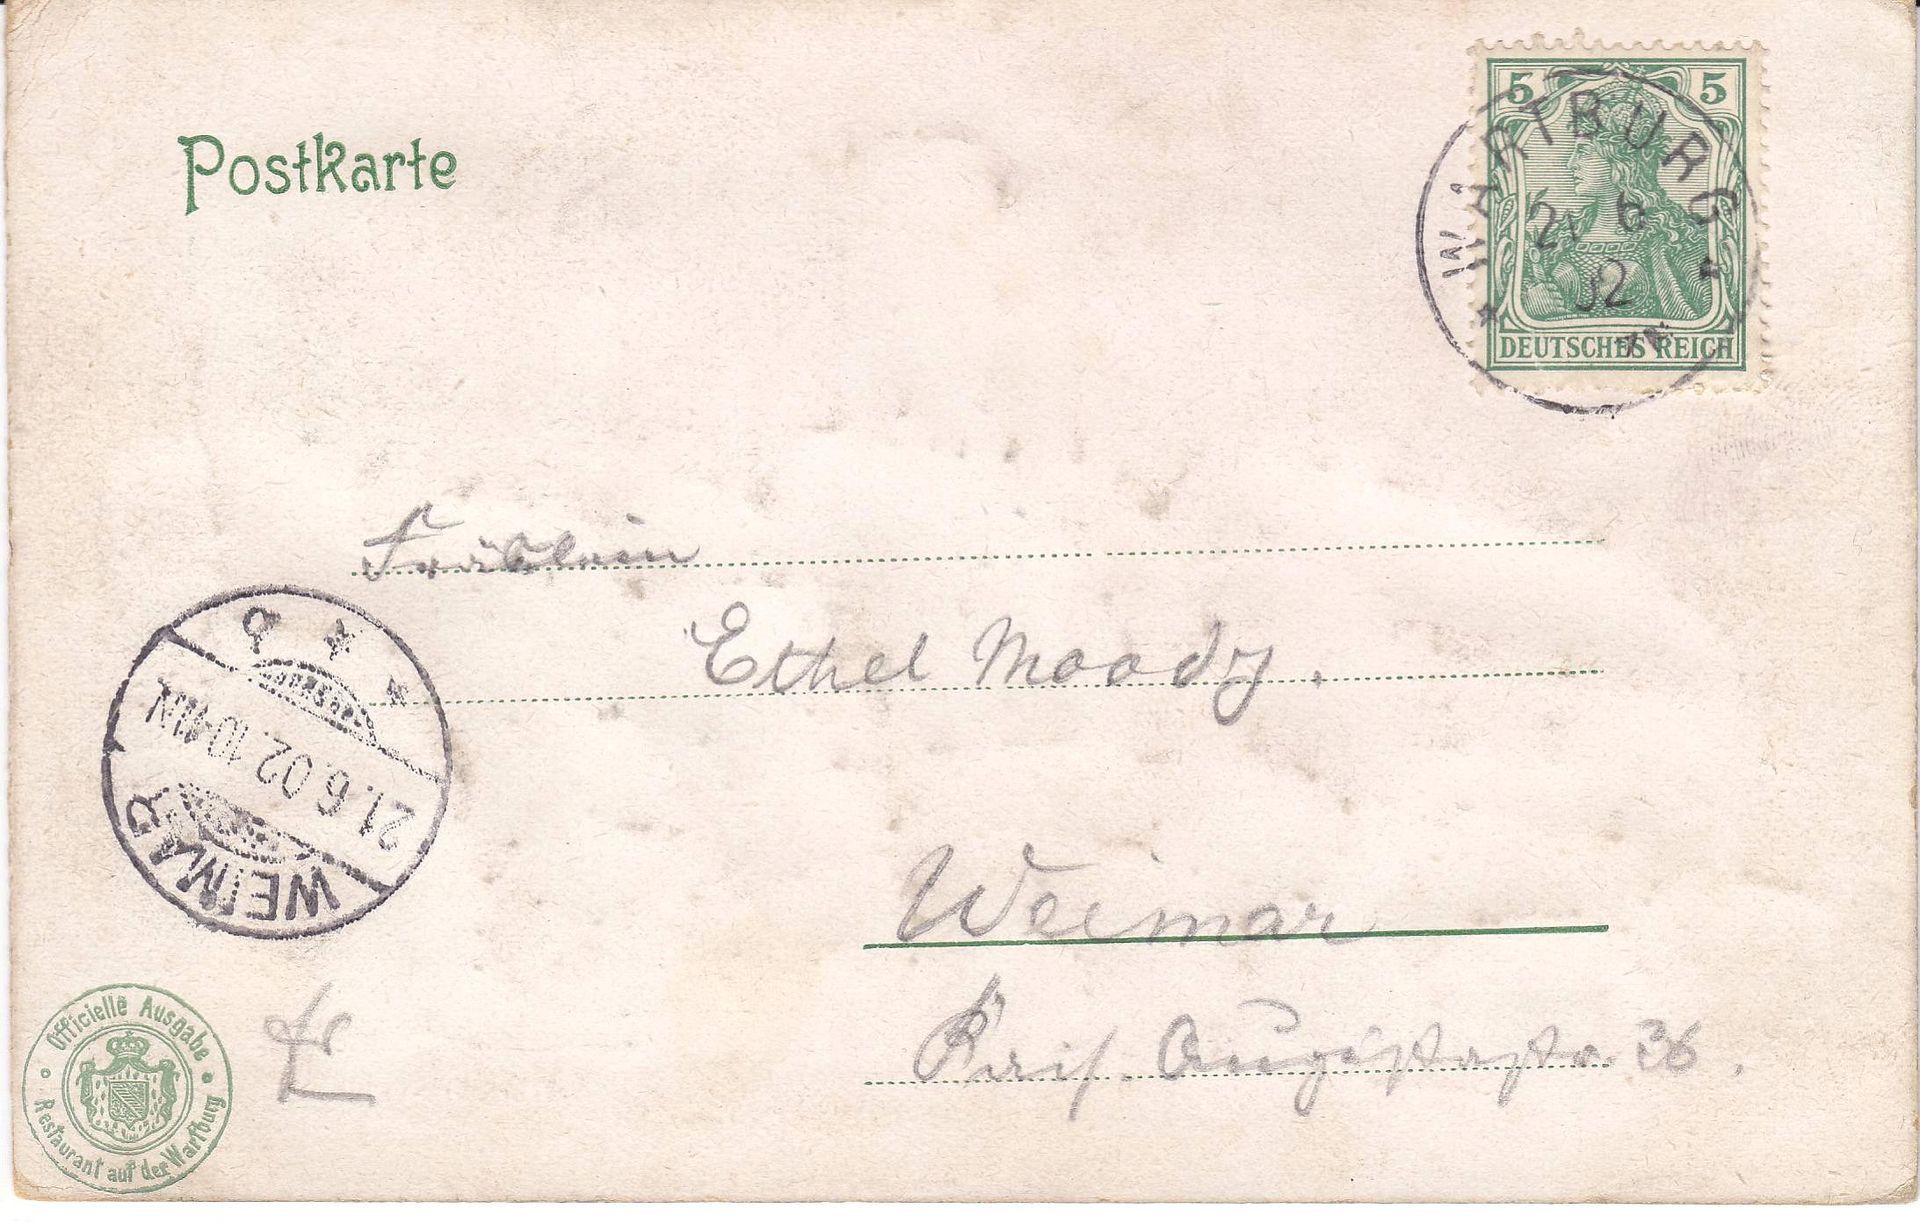 Postkarte
5 5
WARTBURG
21 6
02
DEUTSCHES REICH
Fräulein
Ethel Moody.
Weimar
Augustastr. 36.
WEIMAR
21.6.02.10-11N.
Officielle Ausgabe
Restaurant auf der Wartburg